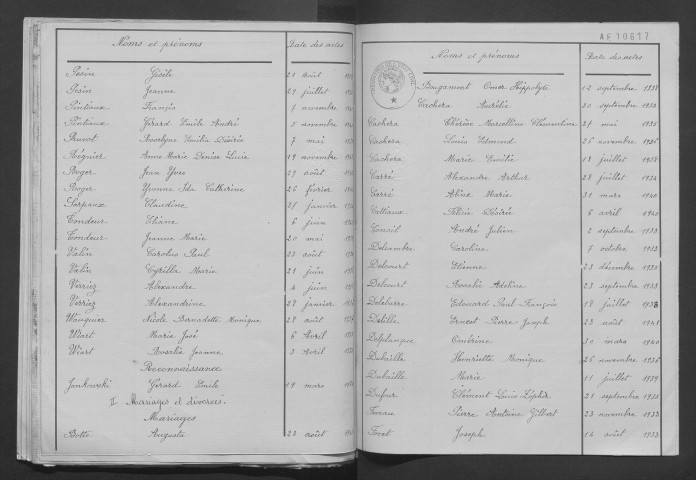 Noms et prénoms Date des actes
Pesin Gisèle 21 août
Pesin Jeanne 29 juillet
Pintiaux François 7 novembre
Pintiaux Gérard Emile André 5 novembre
Pruvot Rocelyne Emilia Désirée 7 mai
Régnier Anne Marie Denise Lucie 19 novembre
Roger Jean Yves 29 août
Roger Yvonne Ida Catherine 26 février
Sarpaux Claudine 27 janvier
Tondeur Liliane 6 juin
Tondeur Jeanne Marie 20 mai
Valin Carolus Paul 23 août
Valin Cyrille Marie 21 juin
Verriez Alexandre 4 juin
Verriez Alexandrine 28 janvier
Wauquier Nicole Bernadette Monique 28 août
Wiart Marie José 6 Avril
Wiart Rosalie Jeanne 3 Avril
Reconnaissance
Jankowski Gérard Emile 19 mars
II Mariages et divorces.
Mariages
Botte Augusta 28 août
AE 10617
Noms et prénoms Date des actes
Brugamont Omer Hippolyte 12 septembre 1938
Cachera Aurélie 30 septembre 1933
Cachera Chéron Marcelline Clémentine 27 mai 1935
Cachera Louis Edmond 26 novembre 1936
Cachera Marie 18 juillet 1938
Carré Alexandre Arthur 28 juillet 1934
Carré Aline Marie 30 mars 1940
Cattiaux Félicie Désirée 6 avril 1940
André Julien 2 septembre 1933
Delcambre Caroline 7 octobre 1933
Delcourt Etienne 23 décembre 1930
Delcourt Rosalie Adeline 23 septembre 1933
Delebarre Edouard Paul François 18 juillet 1938
Delille Ernest Pierre Joseph 23 août 1941
Delplanque Ombrine 30 mars 1940
Dubaille Henriette Monique 26 novembre 1936
Dubaille Marie 11 juillet 1939
Dufour Clément Louis Zéphir 21 septembre 1935
Faveau Pierre Antoine Gilbert 23 novembre 1933
Foret Joseph 14 août 1933